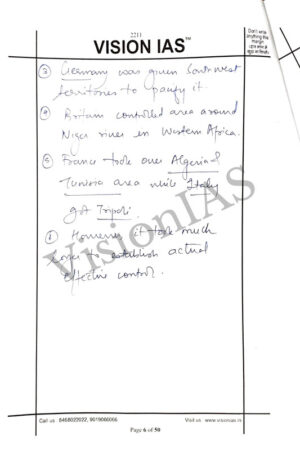 2211
VISION IAS™
Don't write
anything this
margin
③ Germany was given South west
territories to pacify it.
④ Britain controlled area around
Niger river in Western Africa.
⑤ France took over Algeria &
Tunisia area while Italy
got Tripoli.
⑥ However, it took much
to establish actual
effective control.
VisionIAS
Call us : 8468022022, 9019066066
Visit us : www.visionias.in
Page 6 of 50